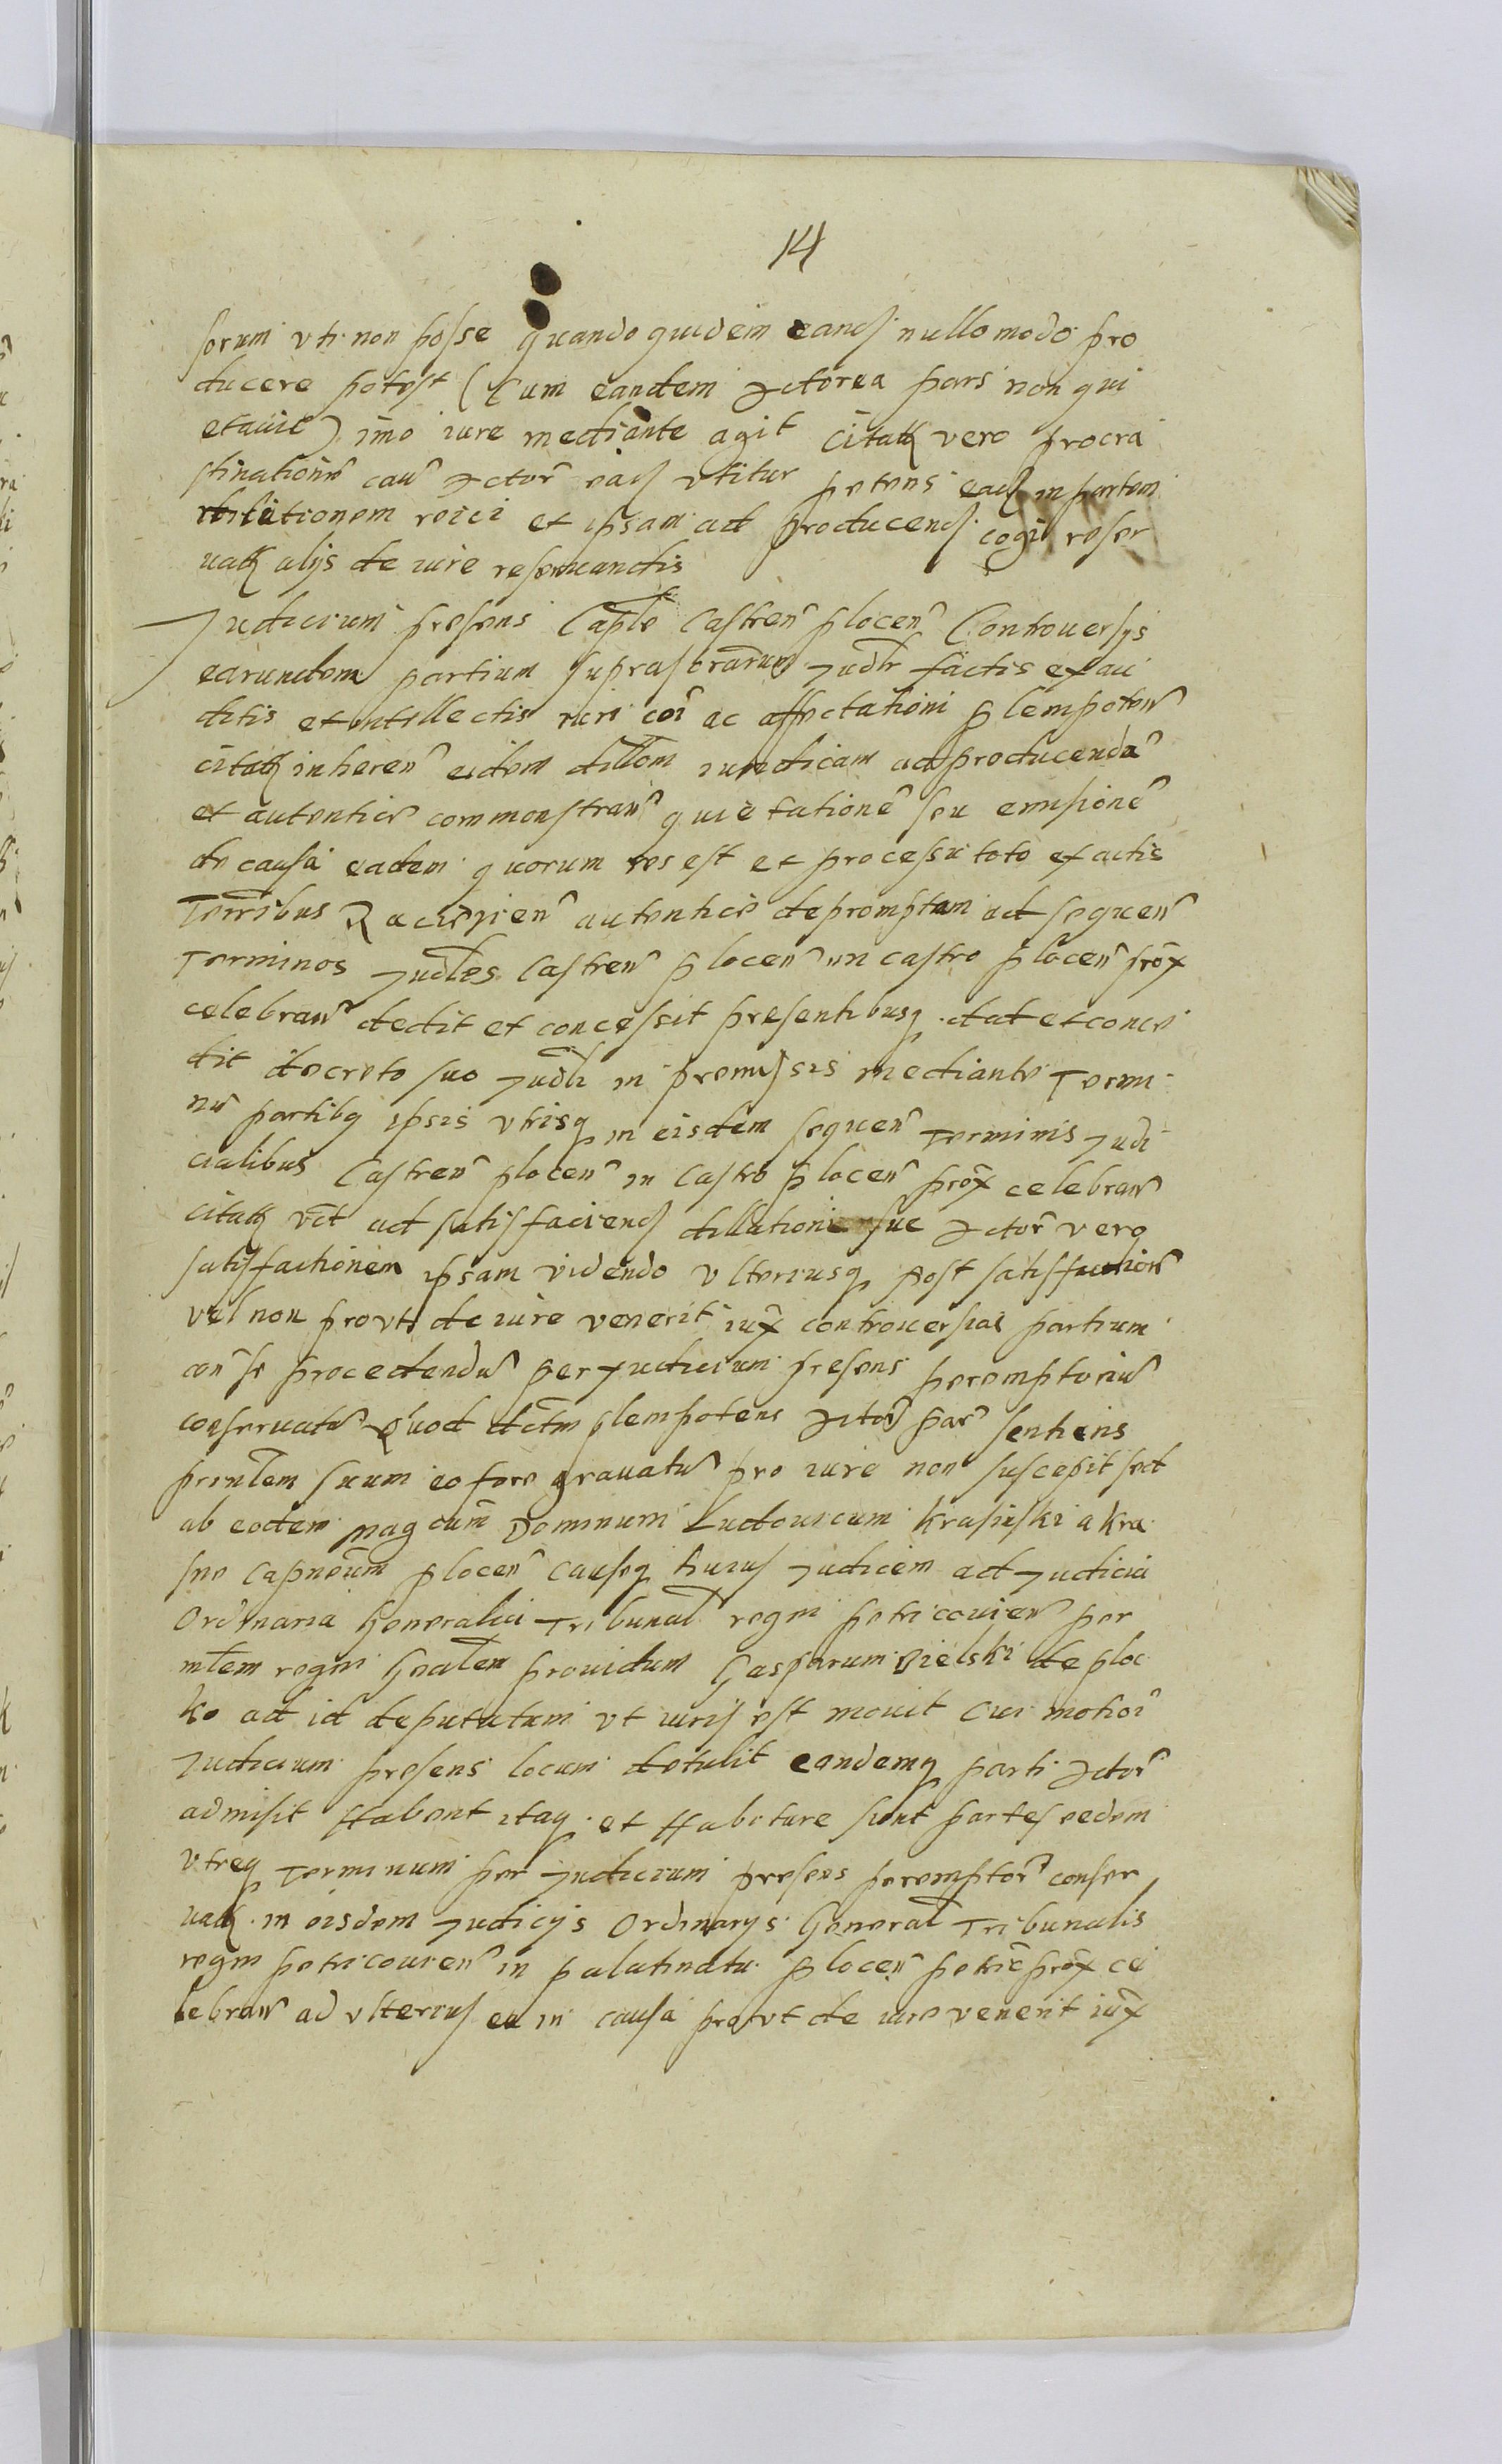 14
sorum vti non posse quando quidem eand nullo modo pro
ducere potest (Cum eandem Actorea pars non qui
etauit) imo iure mediante agit Citata vero procra
stinationē cau Actor ead vtitur petens ead in partem
dilationem reici et ipsam ad producend cogi reser
uatis alijs de iure reseruandis
Judicium presens Caple Castren plocen Controuersijs
earundem partium suprascrarum Judlr factis exau
ditis et intellectis iuri coi ac affectationi plempoten
citata inheren eidem dillom iuridicam ad producenda
et autentice commonstran quietatione seu emisione
de causa eadem quorum res est et processu toto ex actis
Terribus Raciazien autentice depromptam ad sequen
Terminos Judles Castren plocen in castro plocen prox
celebran dedit et concessit presentibusq dat et conce
dit decreto suo Judli in premissis mediante Termi
nu partibq ipsis vtrisq in eisdem sequen Terminis Judi
cialibus Castren plocen in Castro plocen prox celebran
citata vct ad satisfaciend dillationi sue Actor vero
satisfactionem ipsam videndo vlteriusq post satisfaction
vel non provti de iure venerit iux controuersias partium
con se procedendu per Judicium presens peremptoriu
conseruatu Quod dctm plempotens Actor par sentiens
prinlem suum eo fore grauatu pro iure non suscepit sed
ab eodem mag cum Dominum Ludouicum Krasinski a Kra
sne Capneum plocen causeq huius Judicem ad Judicia
Ordinaria Generalia Tribunal regni petricouien per
mlem regni Gnalem prouidum Gasparum Bielski de ploc
ko ad id deputatum vt iuris est mouit Cui motioi
Judicium presens locum detulit eandemq parti Actor
admisit Habent itaq et Habiture sunt partes eedem
vtreq Terminum per Judicium presens peremptor conser
uat in eisdem Judicijs Ordinarys General Tribunalis
regni petricouien in palatinatu plocen petrie prox ce
lebran ad vlterius ea in causa prout de iure venerit iux